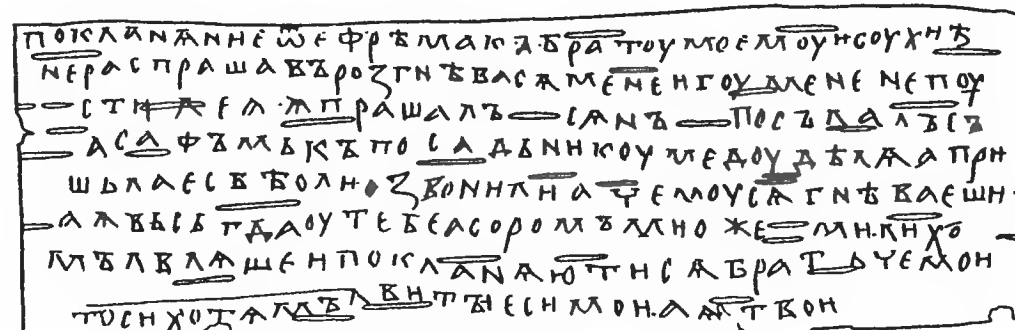 ПОКЛАНѦНИЕѾЕФРѢМАКЪ·БРАТОУМОЕМОУИСОУХИѢ
НЕРАСПРАШАВЪРОЗГНѢВАСѦМЕНЕИГОУМЕНЕНЕПОУ
СТИЛЕА·ѦПРАШАЛЪСѦНЪПОСЪЛАЛЪСЪ
АСАФЪМЬКЪПОСАДЬНИКОУМЕДОУДѢЛѦАПРИ
ШЬЛАЕСВѢОЛИ·ЗВОНИЛИАЧЕМОУСѦГНѢВАЕШИ·
АѦВЬСЬГДАОУТЕБЕАСОРОМЪМИОЖЕМИ·ЛИХО
МЪЛВЛѦШЕИПОКЛАНѦЮТИСѦБРАТЬЧЕМОИ
ТОСИХОТѦМЪЛВИТЪІЕСИМОИ·АѦТВОИ